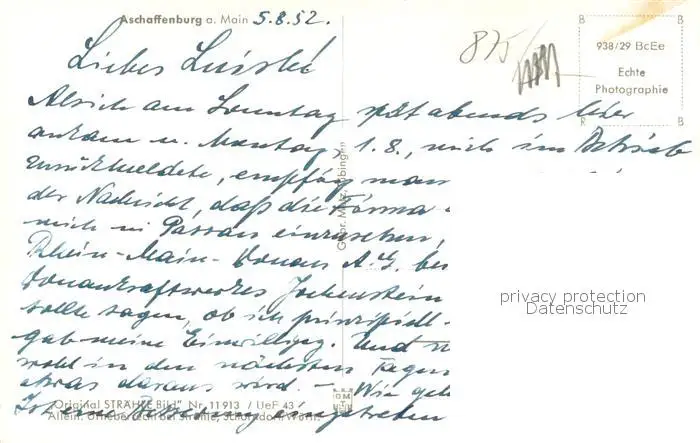 Aschaffenburg a. Main 5.8.52.
875
938/29 BcEe
Echte
Photographie
B B
R B
Liebes Luisle
Als ich am Sonntag spät abends hier
ankam u. Montag, 1.8., mich im Betrieb
zurückmeldete, empfing man
der Nachricht, daß die Firma
mich in Passau einzusetzen,
Rhein-Main-Donau A.G. bei
Donaukraftwerkes Jochenstein
sollte sagen, ob ich prinzipiell
gab meine Einwilligg. Und
wohl in den nächsten Tagen
etwas daraus wird. – Wie geh
Ist eine Besserung eingetreten
Gebr. Metz, Tübingen
privacy protection
Datenschutz
"Original STRÄHLE Bild" Nr. 11913 / UeF 43
Allein. Urheberrecht bei Strähle, Schorndorf/Württ.